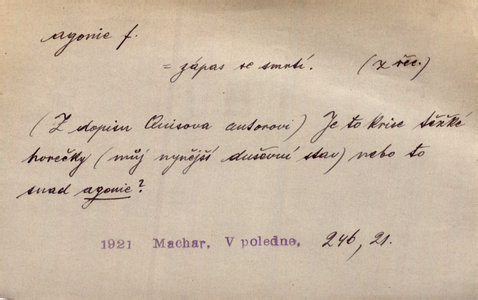 agonie f.
= zápas se smrtí. (z řec.)
(Z dopisu Quisova autorovi) Je to krise těžké
horečky (můj nynější duševní stav) nebo to
snad agonie?
1921 Machar, V poledne, 246, 21.